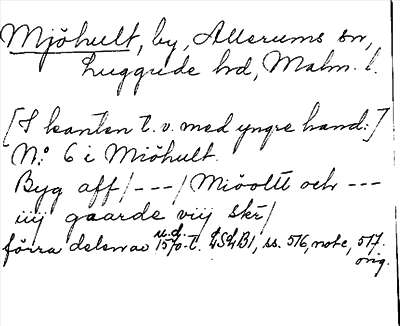 Mjöhult, by, Allerums sn,
Luggude hd, Malm. l.
[I kanten t. v. med yngre hand:]
N:o 6 i Miöhult.
Byg aff /---/ Miöoltt och ---
iiij gaarde viij skr/
förra delen av u.d. 1570-t. LSLB1, ss. 516, note, 517.
orig.